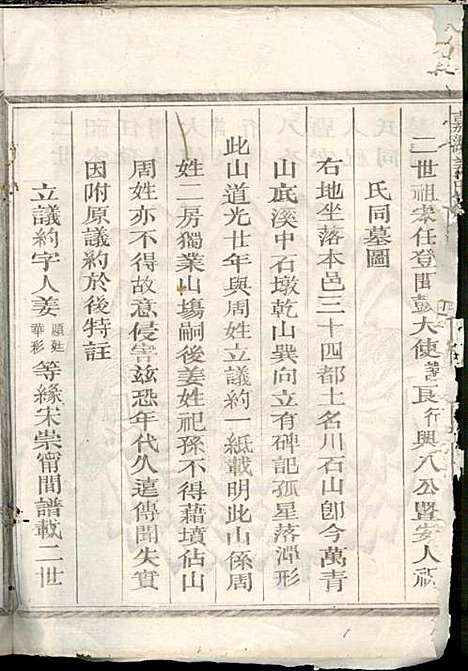 二世祖宋任登聞鼓大使諱良行興八公暨安人祝
氏同墓圖
右地坐落本邑三十四都土名川石山卽今萬青
山底溪中石墩乾山巽向立有碑記孤星落潭形
此山道光廿年與周姓立議約一紙載明此山係周
姓二房獨業山塲嗣後姜姓祀孫不得藉墳佔山
周姓亦不得故意侵害茲恐年代久遠傳聞失實
因咐原議約於後特註
立議約字人姜
華彩
等緣宋崇甯間譜載二世